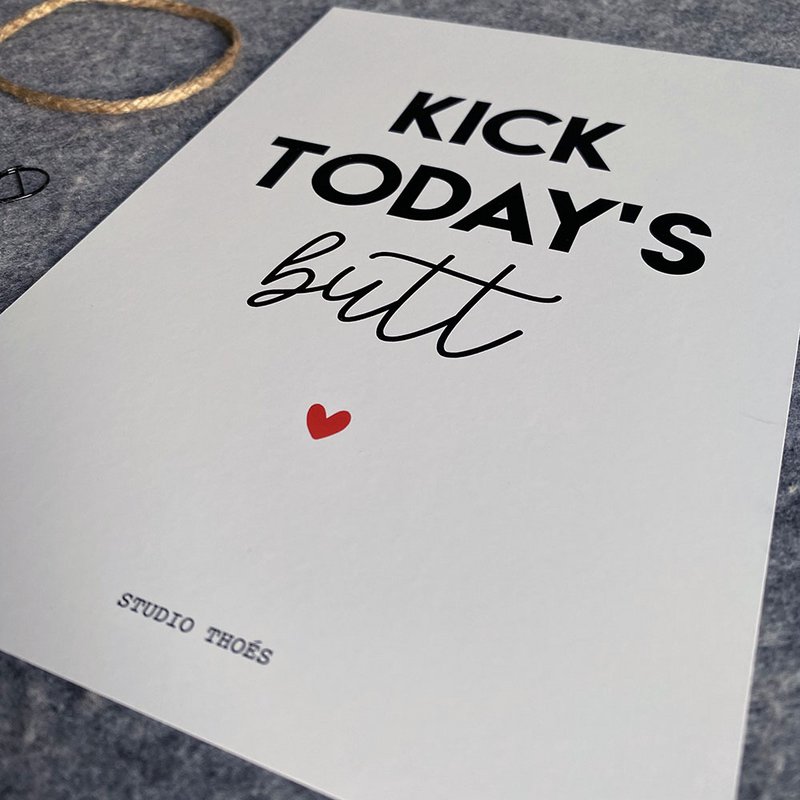 KICK
TODAY'S
butt
STUDIO THOÉS